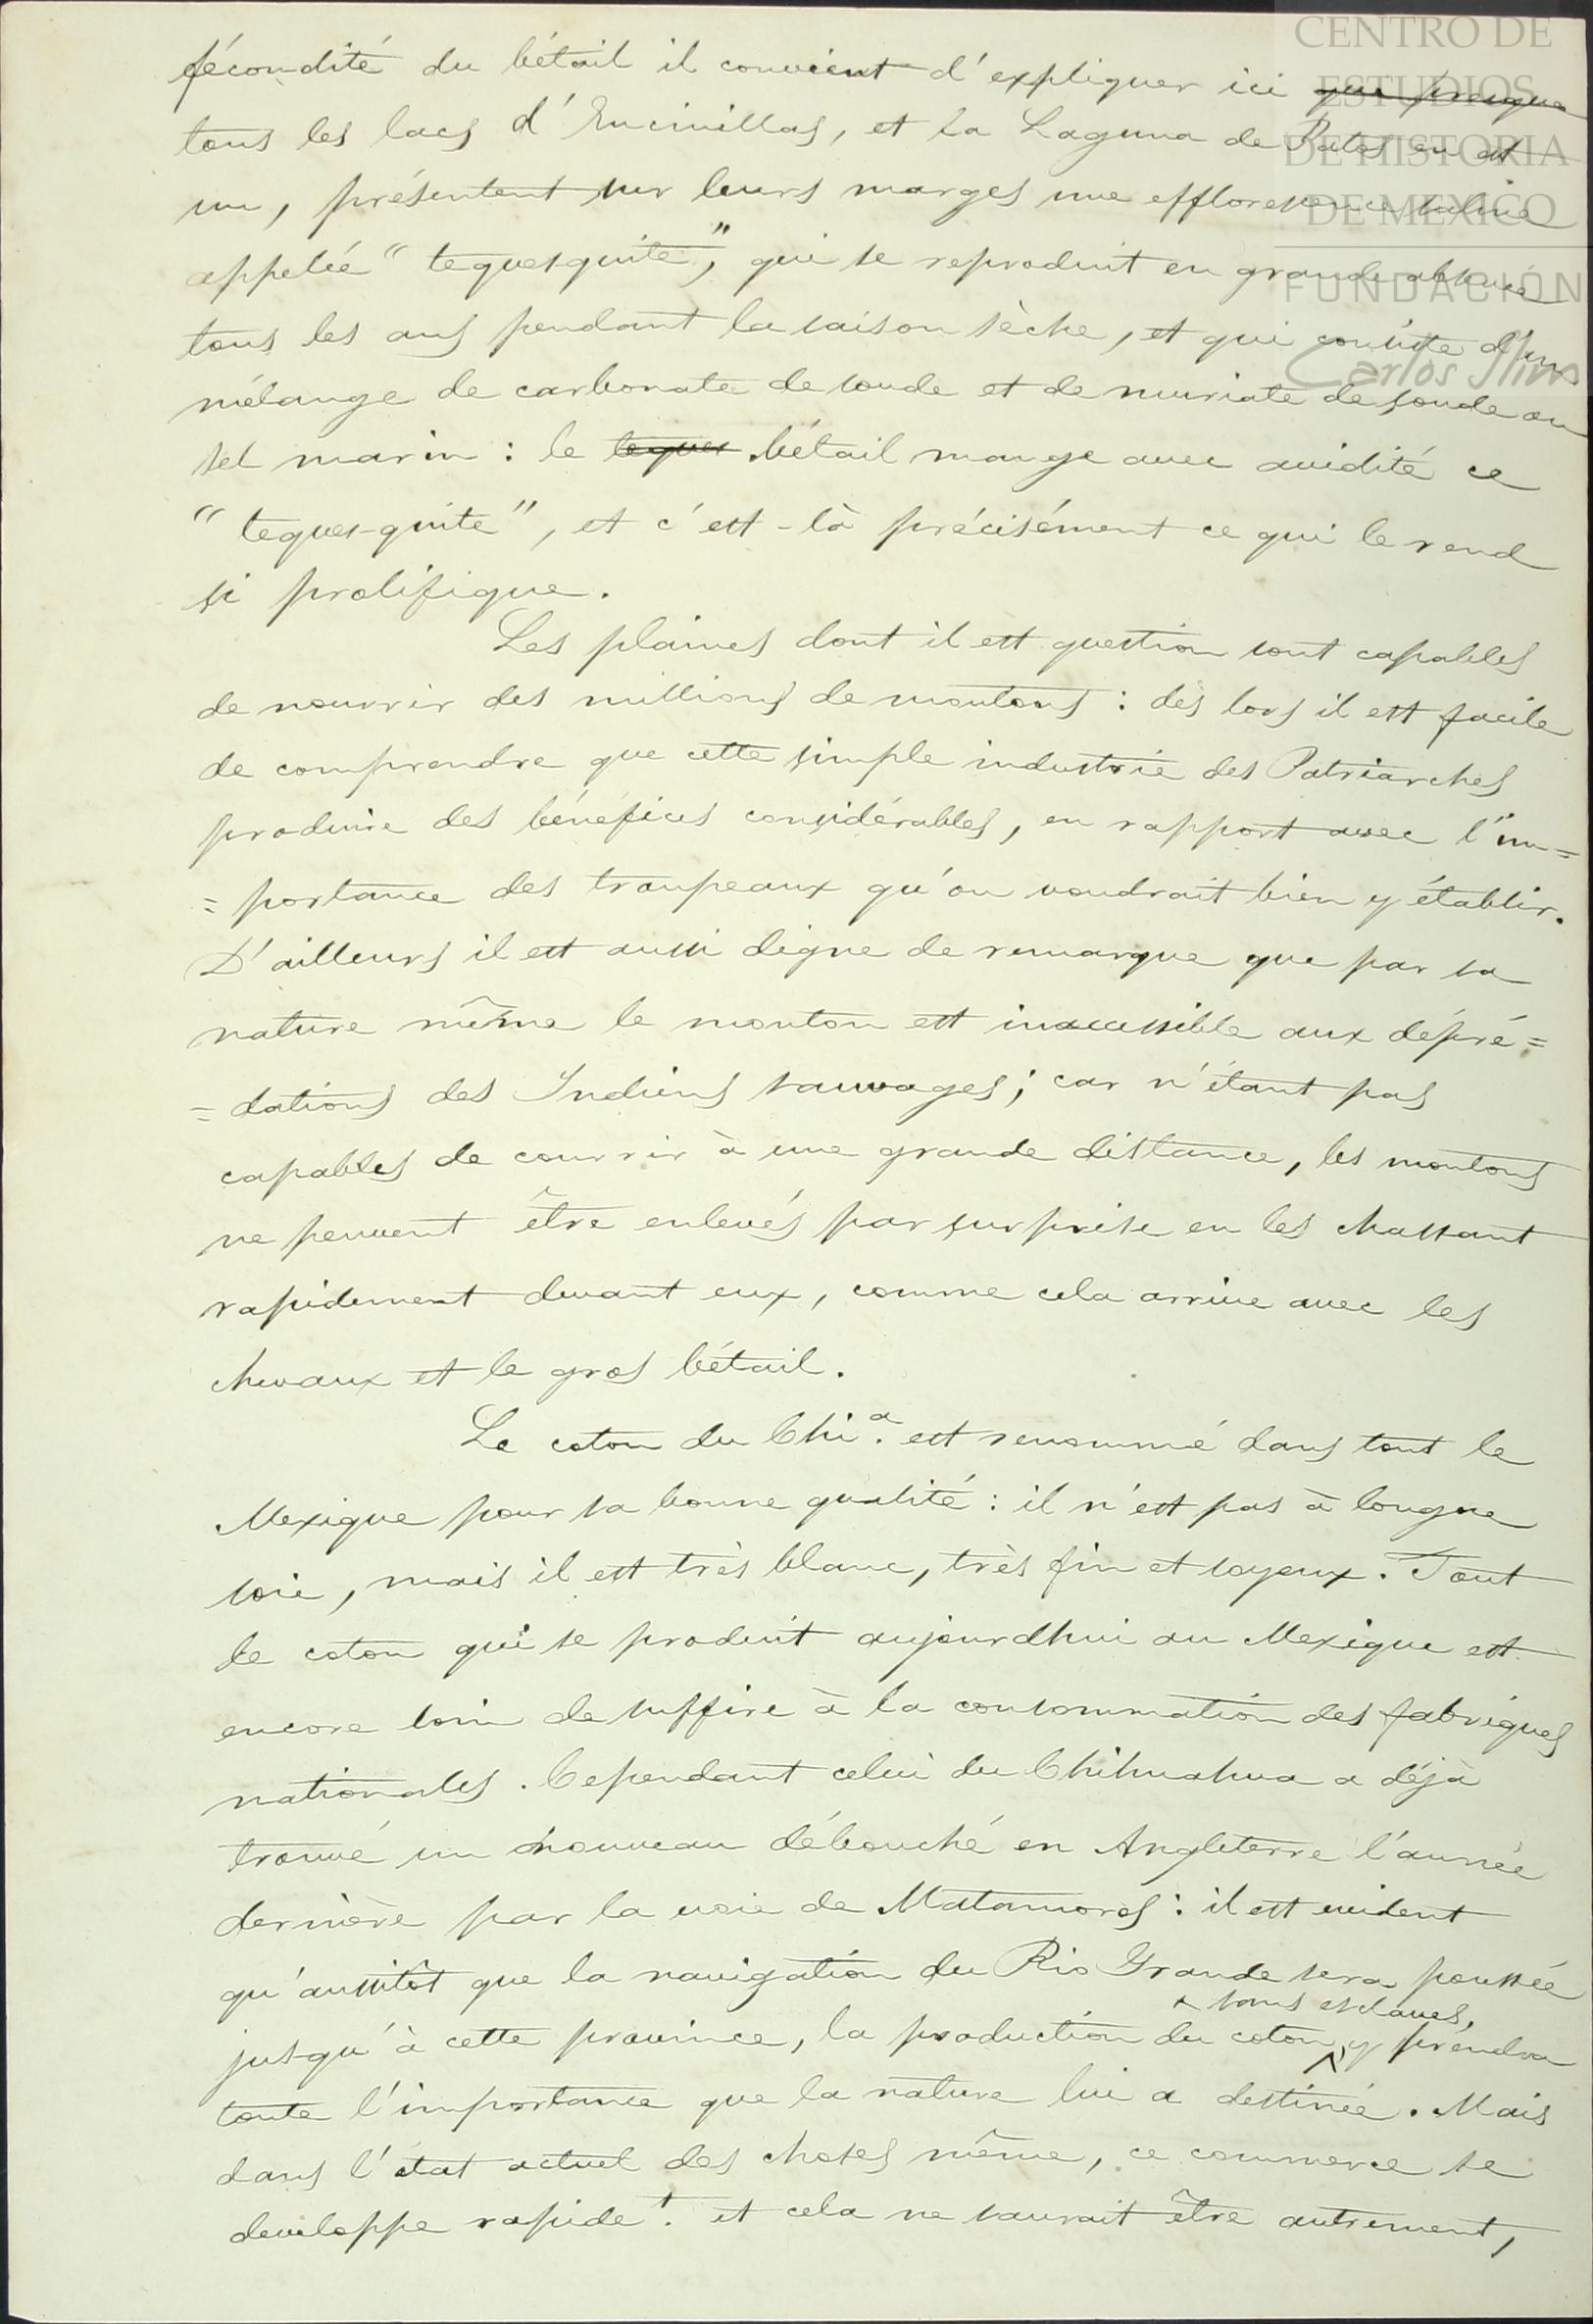 CENTRO DE
ESTUDIOS
DE HISTORIA
DE MEXICO
FUNDACIÓN
Carlos Slim
fécondité du bétail il convient d'expliquer ici que presque
tous les lacs d'Encinillas, et la Laguna de Patos en est
un, présentent sur leurs marges une efflorescence saline
appelée "tequesquite", qui se reproduit en grande
tous les ans pendant la saison sèche, et qui consiste d'un
mélange de carbonate de soude et de muriate de soude ou
sel marin : le teques bétail mange avec avidité ce
"tequesquite", et c'est-là précisément ce qui le rend
si prolifique.
Les plaines dont il est question sont capables
de nourrir des millions de moutons : dès lors il est facile
de comprendre que cette simple industrie des Patriarches
produire des bénéfices considérables, en rapport avec l'im=
=portance des troupeaux qu'on voudrait bien y établir.
D'ailleurs il est aussi digne de remarque que par sa
nature même le mouton est inaccessible aux dépré=
=dations des Indiens sauvages; car n'étant pas
capables de courrir à une grande distance, les moutons
ne peuvent être enlevés par surprise en les chassant
rapidement devant eux, comme cela arrive avec les
chevaux et le gros bétail.
Le coton du Chi.a est renommé dans tout le
Mexique pour sa bonne qualité : il n'est pas à longue
soie, mais il est très blanc, très fin et soyeux. Tout
le coton qui se produit aujourdhui au Mexique est
encore loin de suffire à la consommation des fabriques
nationales. Cependant celui du Chihuahua a déjà
trouvé un nouveau débouché en Angleterre l'année
dernière par la voie de Matamoros : il est evident
qu'aussitôt que la navigation du Rio Grande sera poussée
jusqu'à cette province, la production du coton, sans esclaves, y prendra
toute l'importance que la nature lui a destinée. Mais
dans l'état actuel des choses même, ce commerce se
developpe rapide.t et cela ne saurait être autrement,